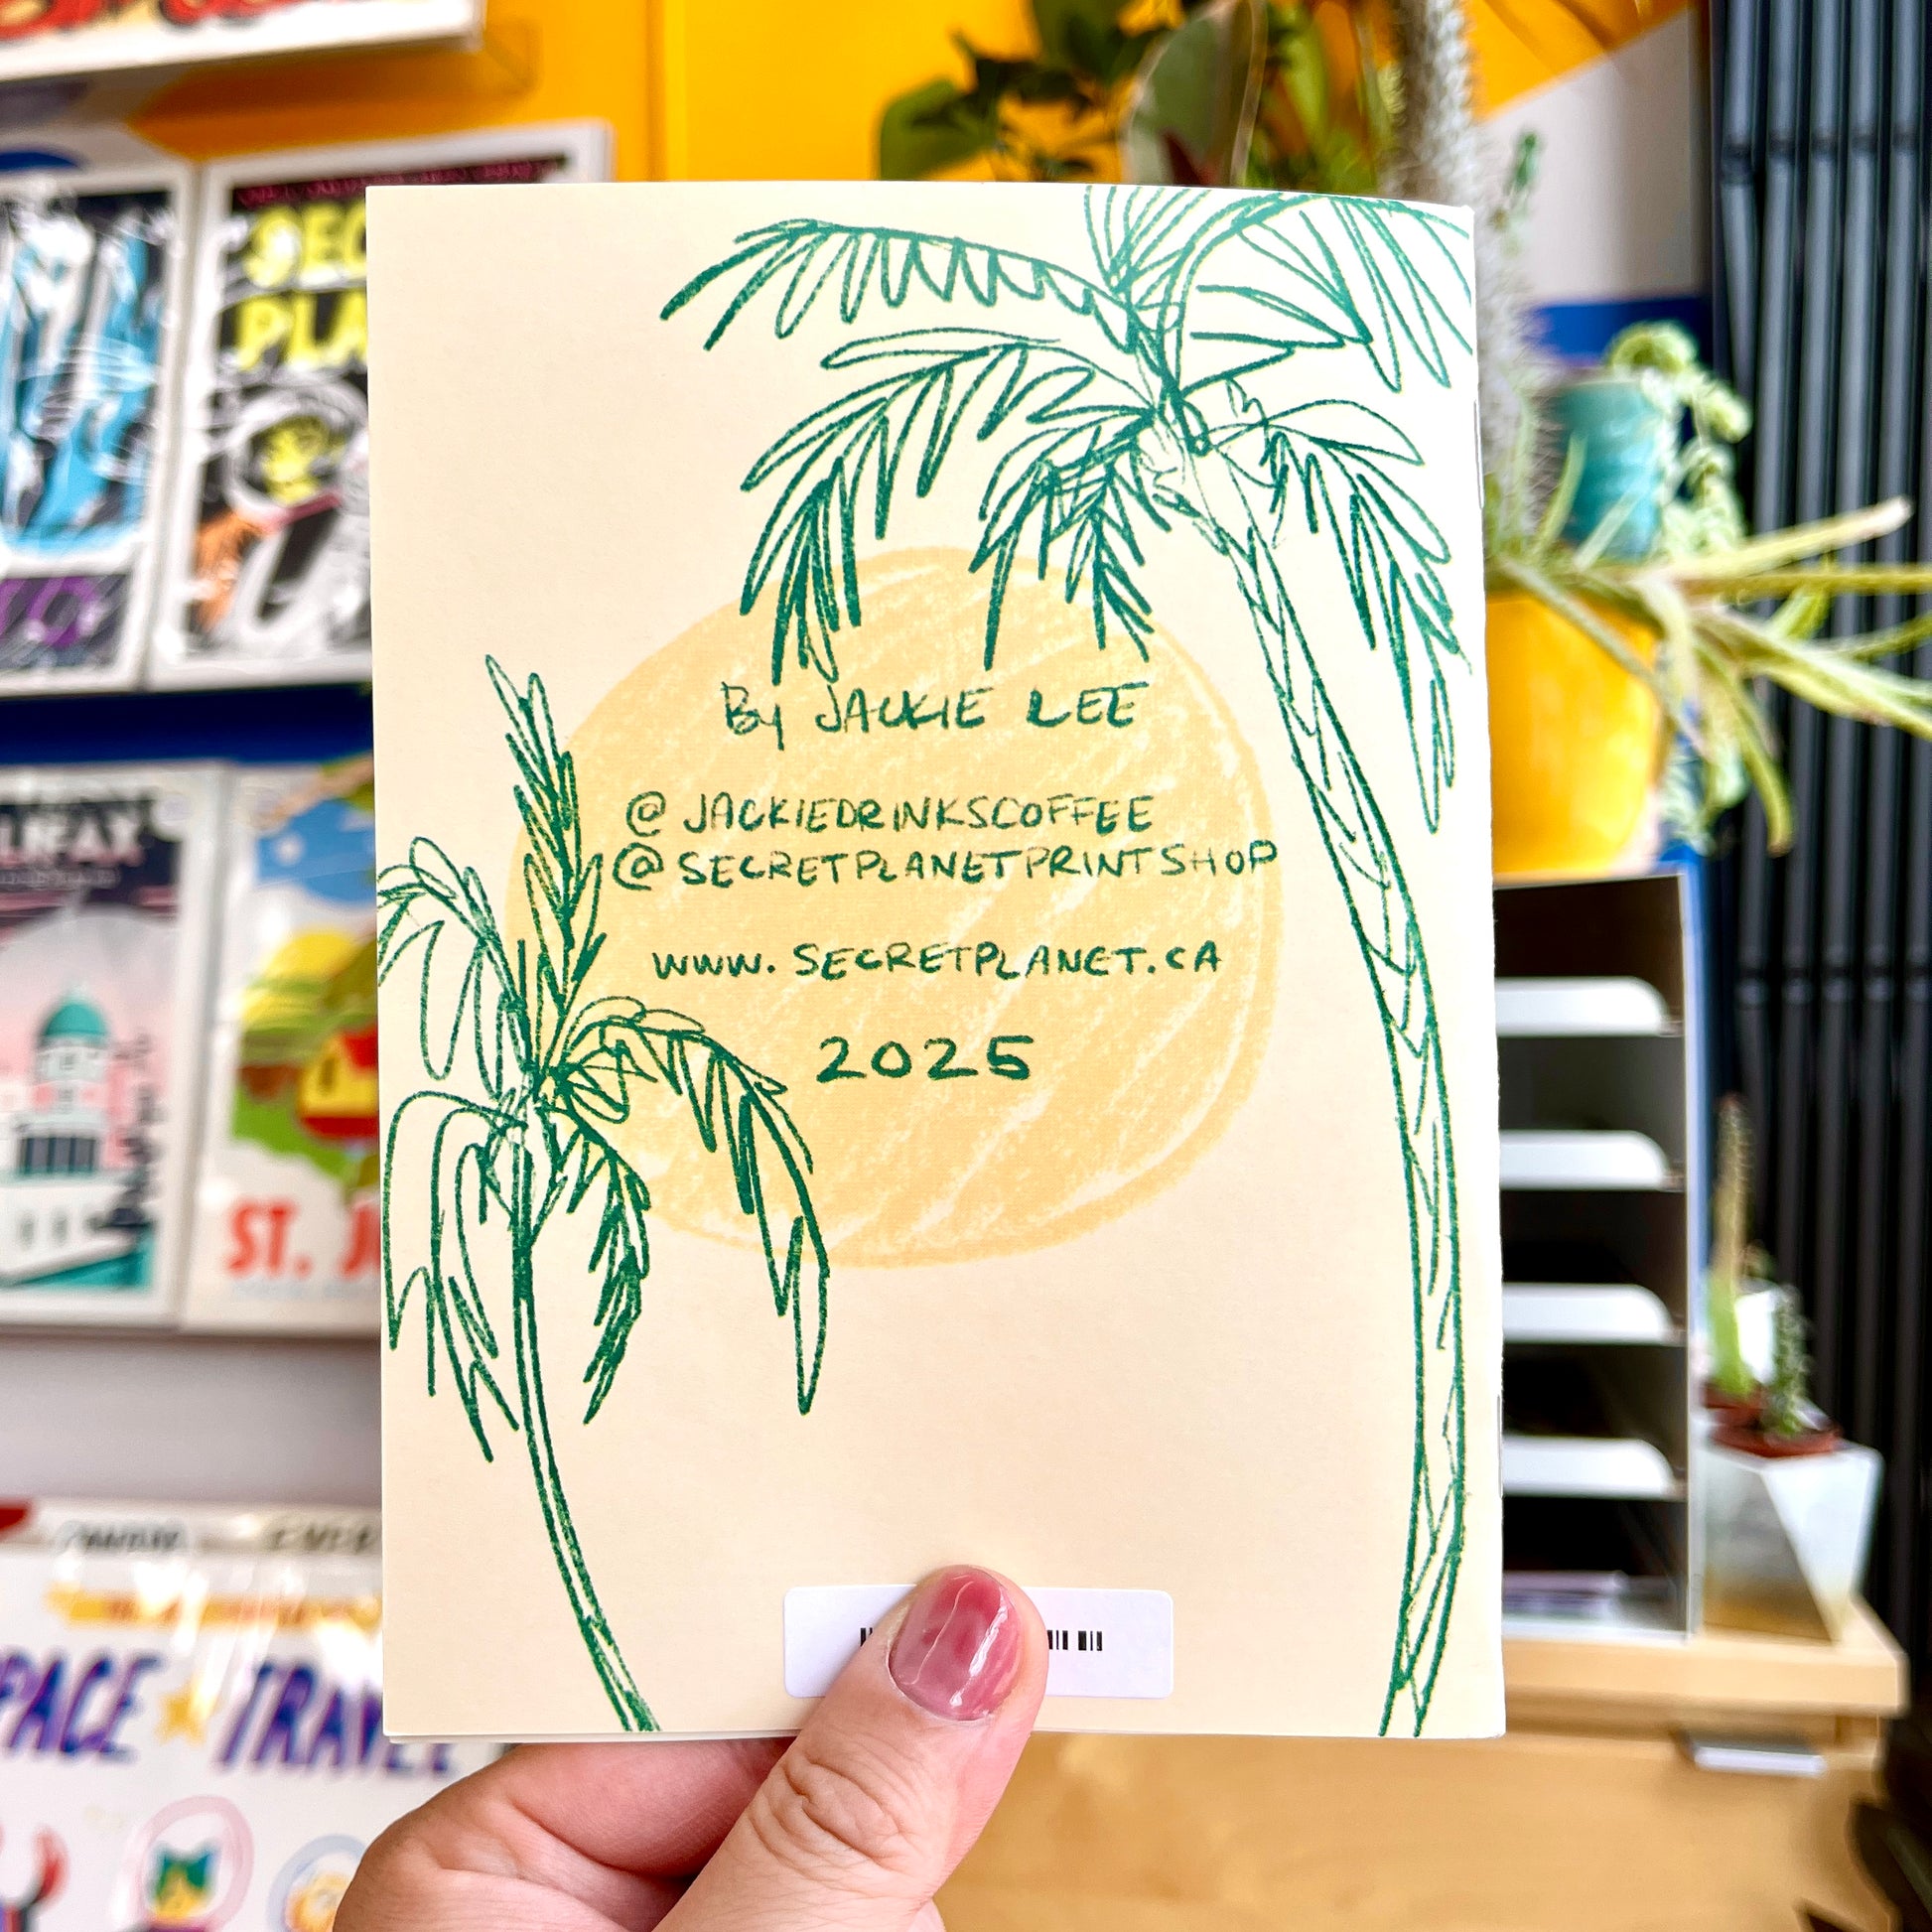 By JACKIE LEE
@JACKIEDRINKSCOFFEE
@SECRETPLANETPRINTSHOP
WWW.SECRETPLANET.CA
2025
ST. J
SPACE TRAVEL